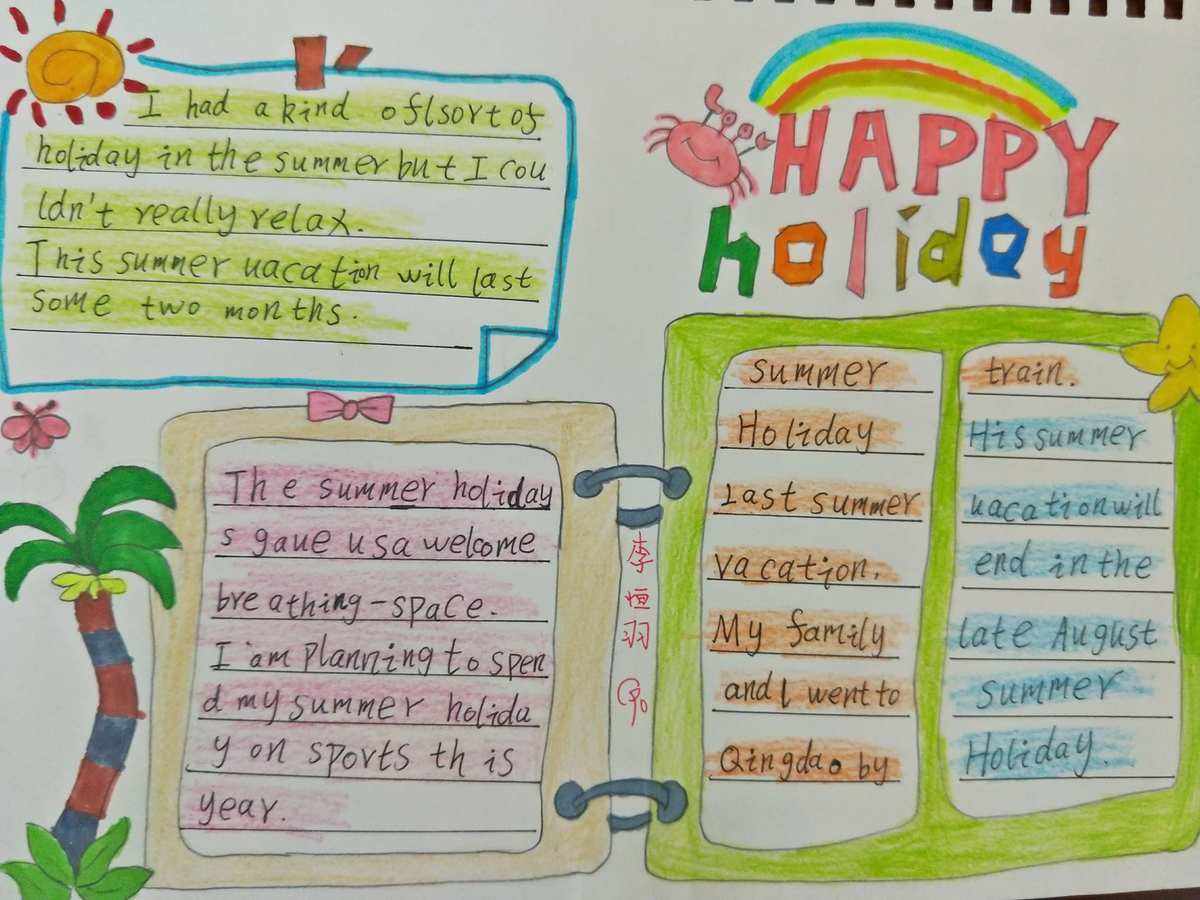 I had a kind of/sort of
holiday in the summer but I cou
ldn't really relax.
This summer uacation will last
some two months.
HAPPY
holidey
The summer holiday
s gaue us a welcome
breathing-space.
I am planning to spen
d my summer holida
y on sports this
year.
李恒羽
summer
Holiday
Last summer
vacation.
My family
and I went to
Qingdao by
train.
His summer
uacation will
end in the
late August
summer
Holiday.